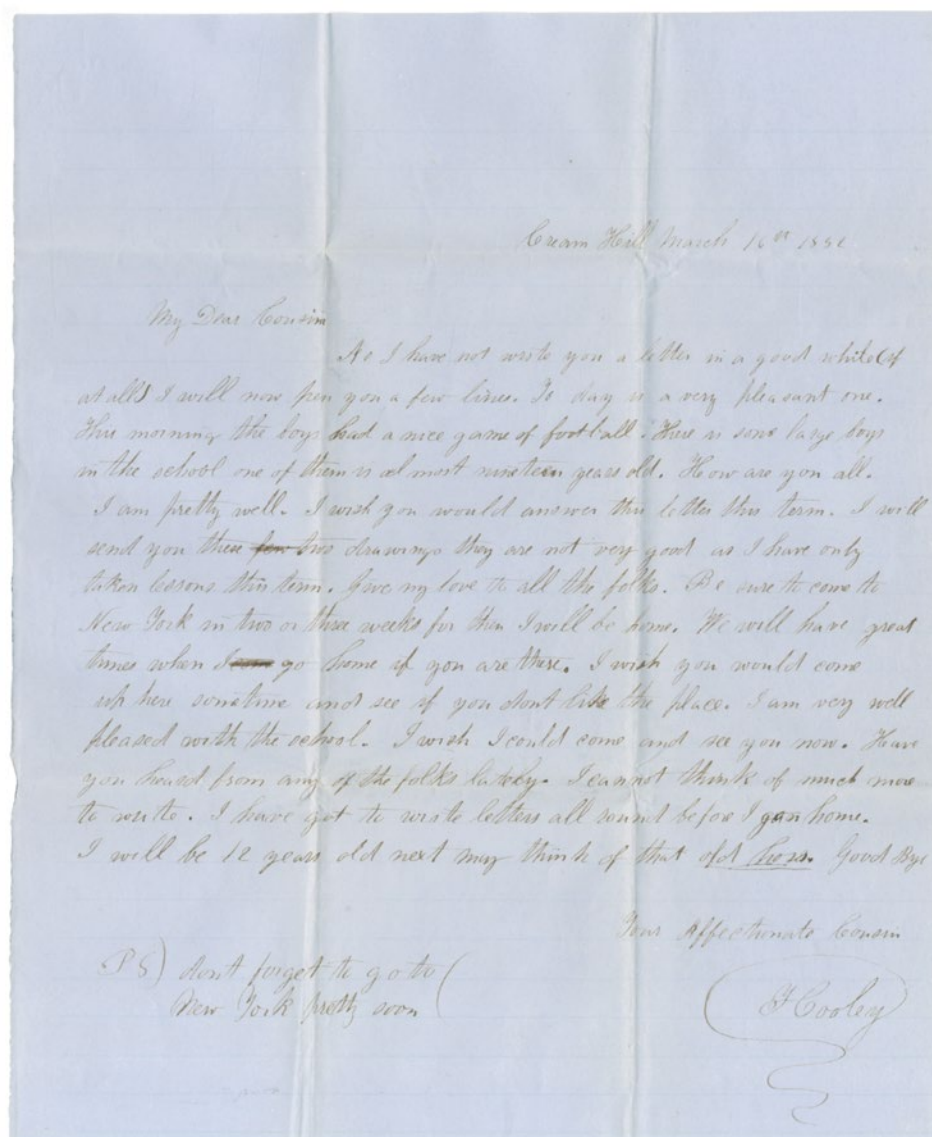 Cream Hill March 16th
My Dear Cousin
As I have not write you a letter in a good while (if
at all) I will now pen you a few lines. To day is a very pleasant one.
This morning the boys had a nice game of football. There is some large boys
in the school one of them is almost nineteen years old. How are you all.
I am pretty well. I wish you would answer this letter this term. I will
send you these few two drawings they are not very good as I have only
taken lessons this term. Give my love to all the folks. Be sure to come to
New York in two or three weeks for then I will be home. We will have great
times when I go home if you are there. I wish you would come
up here sometime and see if you dont like the place. I am very well
pleased with the school. I wish I could come and see you now. Have
you heard from any of the folks lately. I cannot think of much more
to write. I have got to write letters all round before I go home.
I will be 12 years old next may think of that old hoss. Good Bye
Your Affectionate Cousin
PS) dont forget to go to (
New York pretty soon
F Cooley